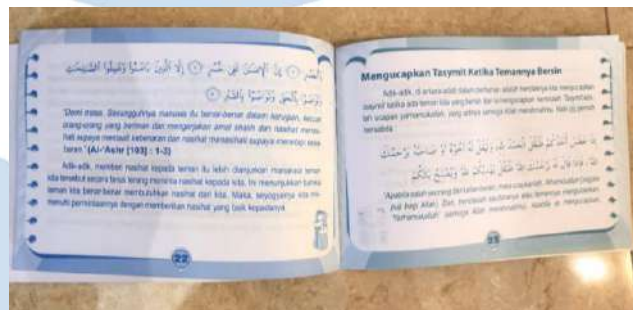 وَالْعَصْرِ ۝١ إِنَّ الْإِنْسَانَ لَفِي خُسْرٍ ۝٢ إِلَّا الَّذِينَ ءَامَنُوا وَعَمِلُوا الصَّالِحَاتِ
وَتَوَاصَوْا بِالْحَقِّ وَتَوَاصَوْا بِالصَّبْرِ ۝٣
"Demi masa. Sesungguhnya manusia itu benar-benar dalam kerugian, kecuali
orang-orang yang beriman dan mengerjakan amal shalih dan nasihat menasi-
hati supaya mentaati kebenaran dan nasihat menasihati supaya menetapi kesa-
baran." (Al-'Ashr [103] : 1-3)
Adik-adik, memberi nasihat kepada teman itu lebih dianjurkan manakala teman
kita tersebut secara terus terang meminta nasihat kepada kita. Ini menunjukkan bahwa
teman kita benar-benar membutuhkan nasihat dari kita. Maka, seyogyanya kita me-
menuhi permintaannya dengan memberikan nasihat yang baik kepadanya.
22
Mengucapkan Tasymit Ketika Temannya Bersin
Adik-adik, di antara adab dalam berteman adalah hendaknya kita mengucapkan
tasymit ketika ada teman kita yang bersin dan ia mengucapkan hamdalah. Tasymit adal-
ah ucapan yarhamukallah, yang artinya semoga Allah merahmatimu. Nabi ﷺ pernah
bersabda :
إِذَا عَطَسَ أَحَدُكُمْ فَلْيَقُلْ الْحَمْدُ لِلَّهِ، وَلْيَقُلْ لَهُ أَخُوهُ أَوْ صَاحِبُهُ يَرْحَمُكَ
اللَّهُ، فَإِذَا قَالَ لَهُ يَرْحَمُكَ اللَّهُ فَلْيَقُلْ يَهْدِيكُمُ اللَّهُ وَيُصْلِحُ بَالَكُمْ
"Apabila salah seorang dari kalian bersin, maka ucapkanlah, 'Alhamdulillah' (segala
puji bagi Allah). Dan, hendaklah saudaranya atau temannya mengucapkan,
'Yarhamukallah' (semoga Allah merahmatimu). Apabila ia mengucapkan,
23